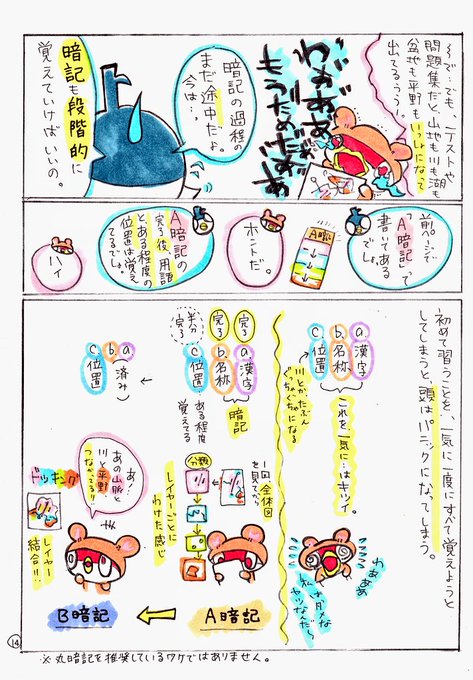 で…でも、テストや
問題集だと、山地も川も湖も
盆地も平野もいっしょになって
出てるううう!
暗記の過程の
まだ途中だよ。
今は…
暗記も段階的に
覚えていけばいいの。
前ページで
「A暗記」って
書いてある
でしょ。
A暗記
ホントだ。
A暗記の
完了後、用語
と、ある程度の
位置は覚え
てるでしょ。
ハイ
初めて習うことを、一気に一度にすべて覚えようと
してしまうと、頭はパニックになってしまう。
a 漢字
b 名称
c 位置
これを一気に…はキツイ。
川とか、たぶん
ぐっちゃぐちゃになる
わあああ
完了
完了
半分完了
a 漢字
b 名称
c 位置
暗記
ある程度
覚えてる
1回、全体図
を見てから
分類
レイヤーごとに
わけた感じ
A暗記
a
b
c
済み
位置
あ!
あの山脈と
川と平野
つながってる!!
ドッキング
レイヤー
結合!!
B暗記
14
※丸暗記を推奨しているワケではありません。